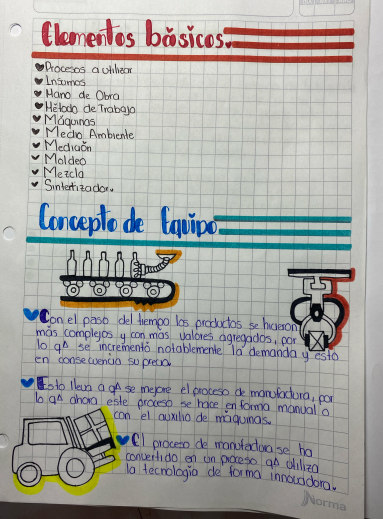 Elementos básicos.
Procesos a utilizar
Insumos
Mano de Obra
Método de Trabajo
Máquinas
Medio Ambiente
Medición
Moldeo
Mezcla
Sintetizador.
Concepto de Equipo
Con el paso del tiempo los productos se hicieron
más complejos y con más valores agregados, por
lo q^ se incrementó notablemente la demanda y esto
en consecuencia su precio.
Esto lleva a q^ se mejore el proceso de manufactura, por
lo q^ ahora este proceso se hace en forma manual o
con el auxilio de máquinas.
El proceso de manufactura se ha
convertido en un proceso q^ utiliza
la tecnología de forma innovadora.
Norma